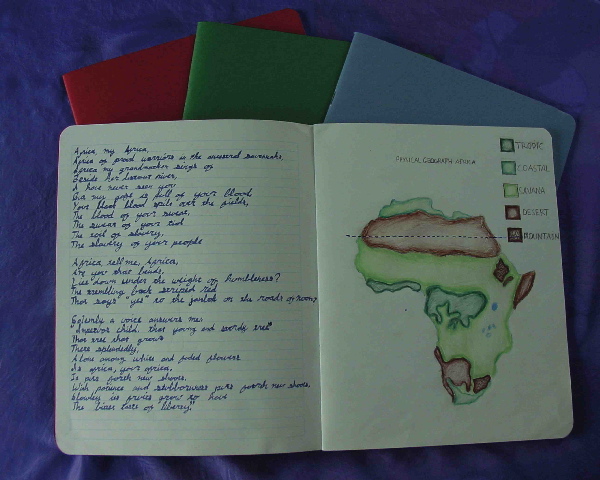 Africa, my Africa,
Africa of proud warriors in the ancestral savannahs,
Africa my grandmother sings of
Beside her distant river,
I have never seen you
But my gaze is full of your blood
Your black blood spilt over the fields,
The blood of your sweat,
The sweat of your toil
The toil of slavery,
The slavery of your people
Africa tell me, Africa,
Are you that bends,
Lies down under the weight of humbleness?
The trembling back striped red
That says "yes" to the on the roads of noon?
Solemnly a voice answers me
"Impetuous child, that young and sturdy tree"
That tree that grows
There splendidly,
Alone among white and faded flowers
Is africa, your africa,
It puts forth new shoots,
With patience and stubbornness puts forth new shoots,
Slowly its fruits grow to have
The bitter taste of liberty."
PHYSICAL GEOGRAPHY AFRICA
TROPIC
COASTAL
DESERT
MOUNTAIN